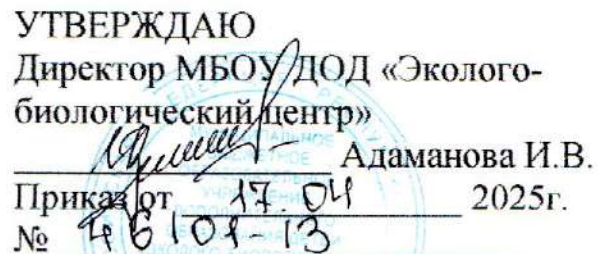 УТВЕРЖДАЮ
Директор МБОУ ДОД «Эколого-
биологический центр»
Адаманова И.В.
Приказ от 17.04 2025г.
№ 46/01-13